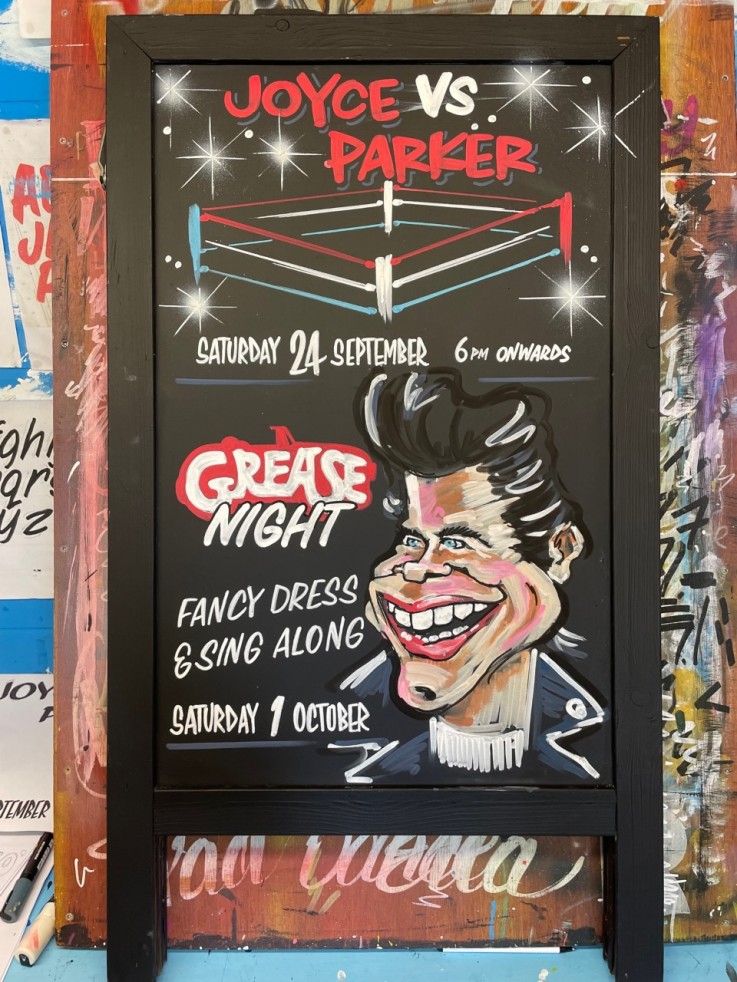 JOYCE VS
PARKER
SATURDAY 24 SEPTEMBER 6PM ONWARDS
GREASE
NIGHT
FANCY DRESS
& SING ALONG
SATURDAY 1 OCTOBER